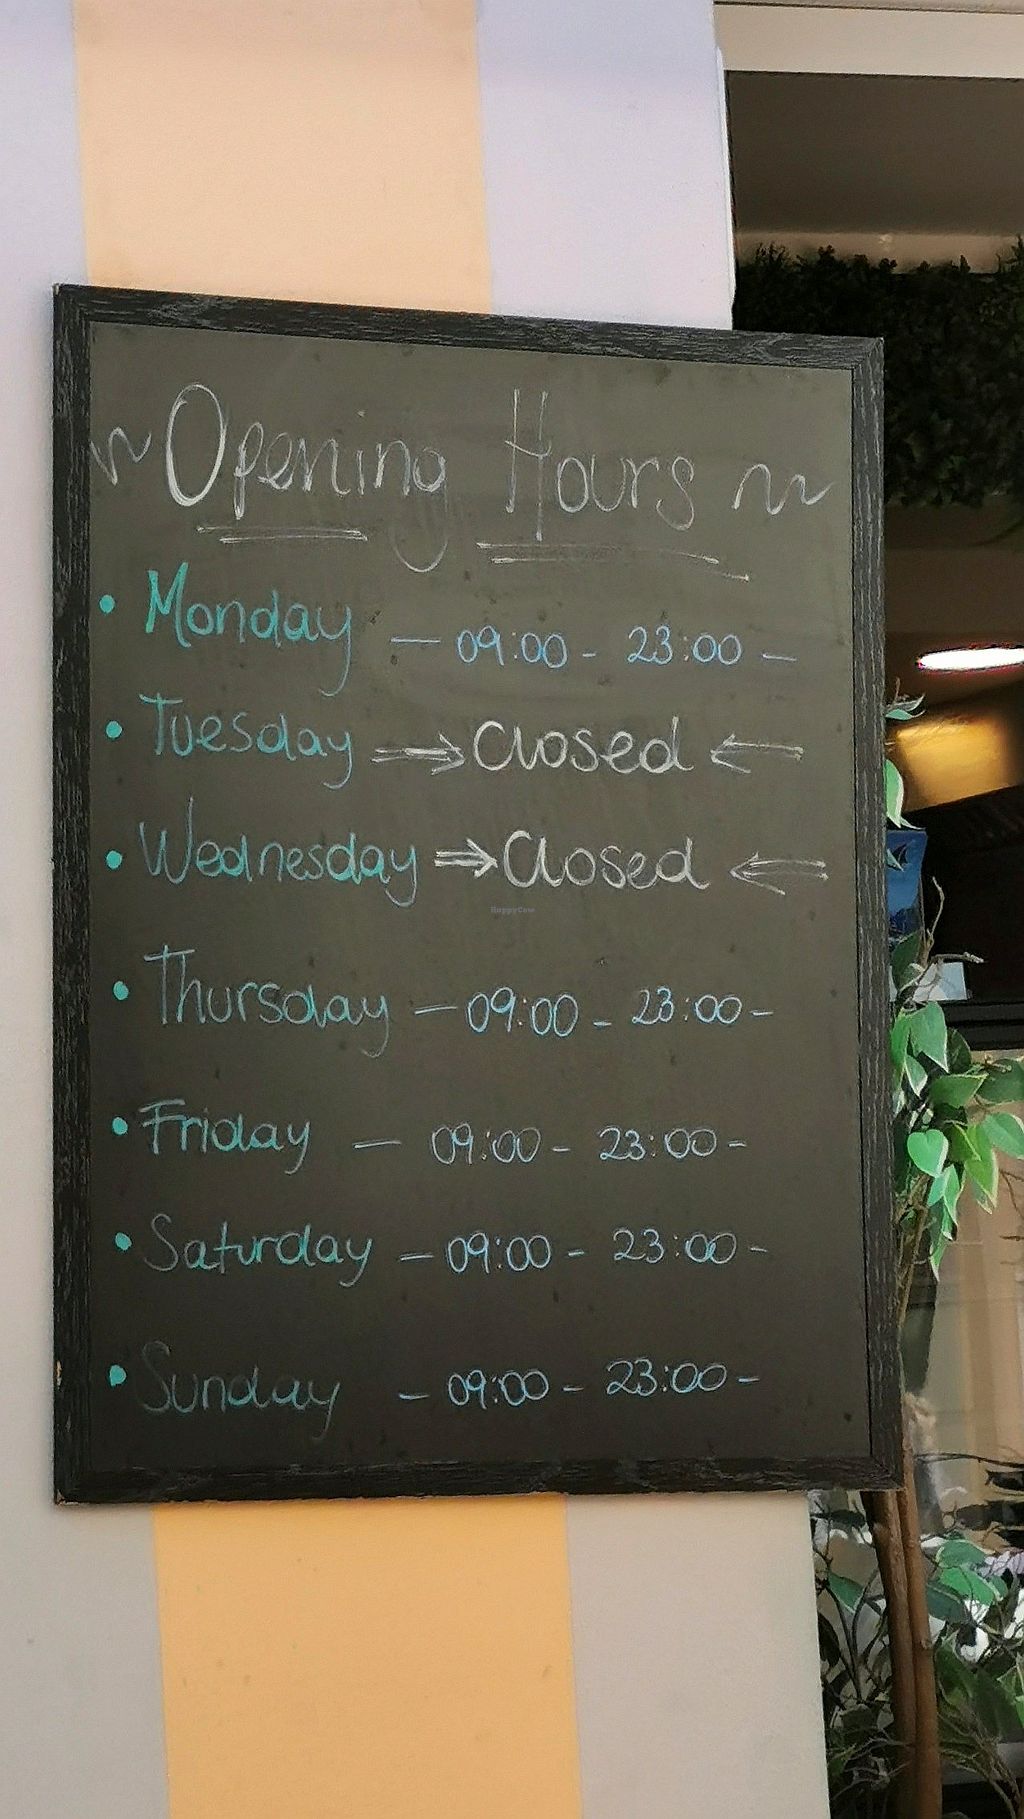 ~ Opening Hours ~
• Monday — 09:00 - 23:00 —
• Tuesday ⇒ Closed ⇐
• Wednesday ⇒ Closed ⇐
HappyCow
• Thursday — 09:00 - 23:00 -
• Friday — 09:00 - 23:00 -
• Saturday - 09:00 - 23:00 -
• Sunday - 09:00 - 23:00 -